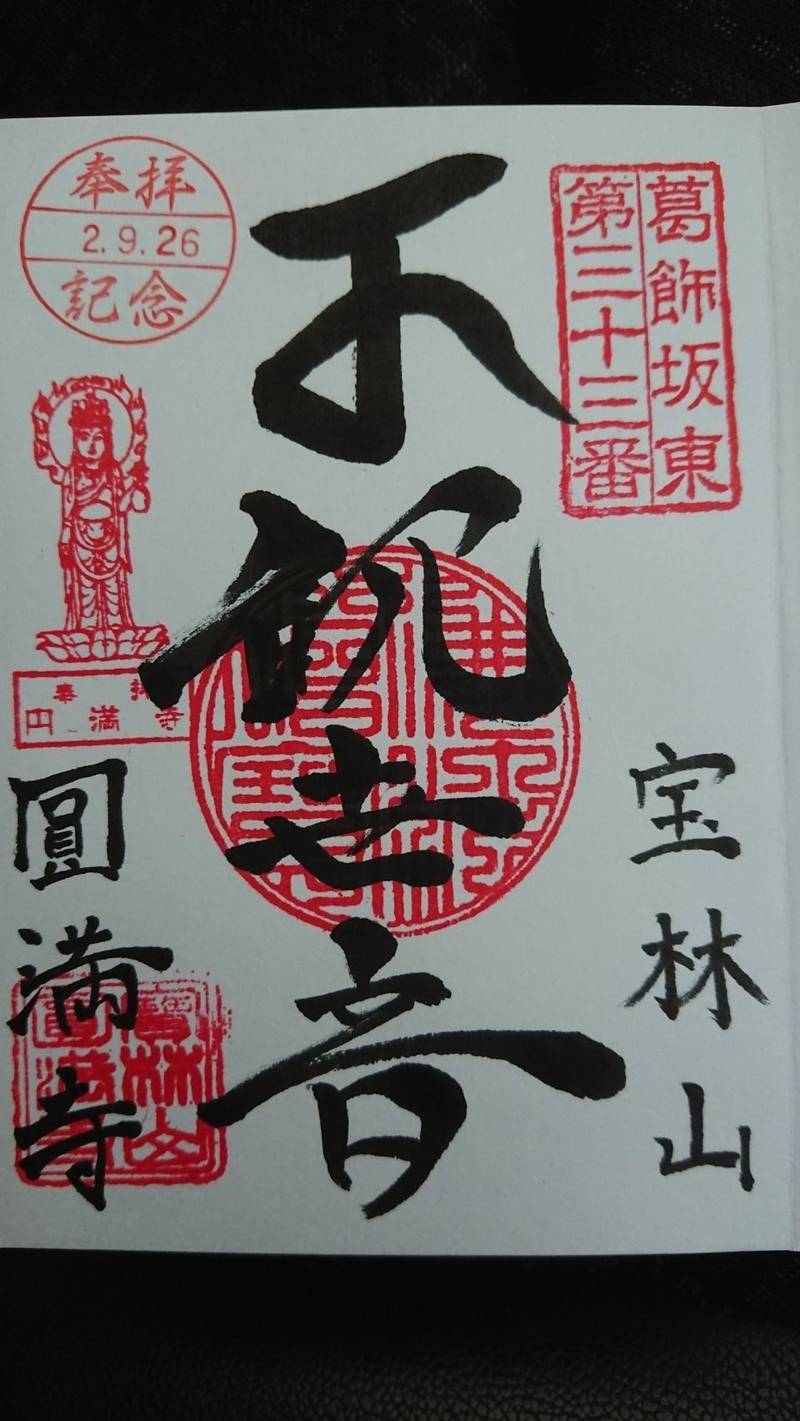 葛飾坂東
第三十三番
宝林山
観世音
奉拝
2.9.26
記念
奉拝
円満寺
圓満寺
寶林山